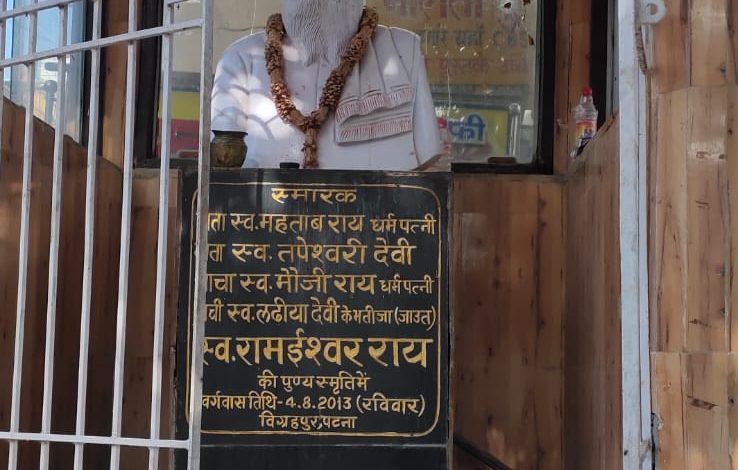 स्मारक
ता स्व. महताब राय धर्म पत्नी
ता स्व. तपेश्वरी देवी
ाचा स्व. मौजी राय धर्म पत्नी
ची स्व. लढीया देवी के भतीजा (जाउत)
स्व. रामईश्वर राय
की पुण्य स्मृति में
वर्गवास तिथि-4.8.2013 (रविवार)
विग्रहपुर, पटना